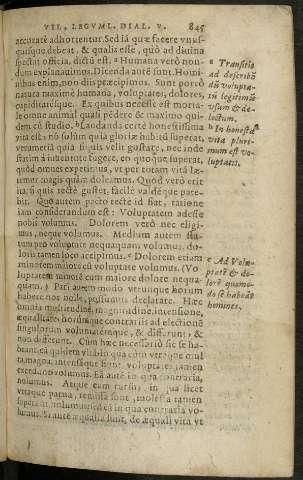 VEL, LEGVMI. DIAL. V. 845
accuratè adhortentur. Sed iā quæ facere vnus-
quisque debeat, & qualis esse, quò ad diuina
spectat officia, dictū est. ª Humana verò non-
dum explanauimus. Dicenda autē sunt. Homi
nibus enim, non diis præcipimus. Sunt porrò
natura maximè humana, voluptates, dolores,
cupiditatésque. Ex quibus necesse est morta-
le omne animal quasi pēdere & maximo qui-
dem cū studio. ᵇ Laudanda certè honestissima
vita est: nō solùm quia gloriæ habitu superat,
verumetiā quia siquis velit gustare, nec inde
statim à iuuentute fugere, eo quoque superat,
quòd omnes expetimus, vt per totam vitā læ-
temur magis quàm doleamus. Quòd verò erit
ita, si quis rectè gustet, facilè valdéque pate-
bit. Quo autem pacto rectè id fiat, ratione
iam considerandum est: Voluptatem adesse
nobis volumus. Dolorem verò nec eligi-
mus, neque volumus. Medium autem
pro voluptate nequaquam volumus, do-
loris tamen loco accipimus. ᶜ Dolorem etiam
minorem maiore cū voluptate volumus. Vo
luptatem minorē cum maiore dolore nequa-
quam. Pari autem modo vtrunque horum
habere nos nolle, possumus declarare. Hæc
omnia multitudine, magnitudine, intensione,
æqualitate, horúmque contrariis ad electionē
singulorum voluntatémque, & differunt, &
non differunt. Cùm hæc necessariò sic se ha-
beant, eā quidem vitā in qua
magna, intensáque sunt, voluptates tamen
excedunt volumus. Eā autē in qua contraria,
nolumus. Atque eam rursus, in qua licet
vtraque parua, remissa sunt, molesta tamen
superant, nolumus: sed eā in qua contraria vo-
lumus. Si autē æqualia sunt, de æquali vita vt
a Transitio
ad describē
dū volupta-
tū legitimū
vsum & de-
lectum.
b In honesta
vita pluri-
mum est vo-
luptatis.
c Ad Volu-
ptatē & do-
lorē quomo-
do se habeāt
homines.